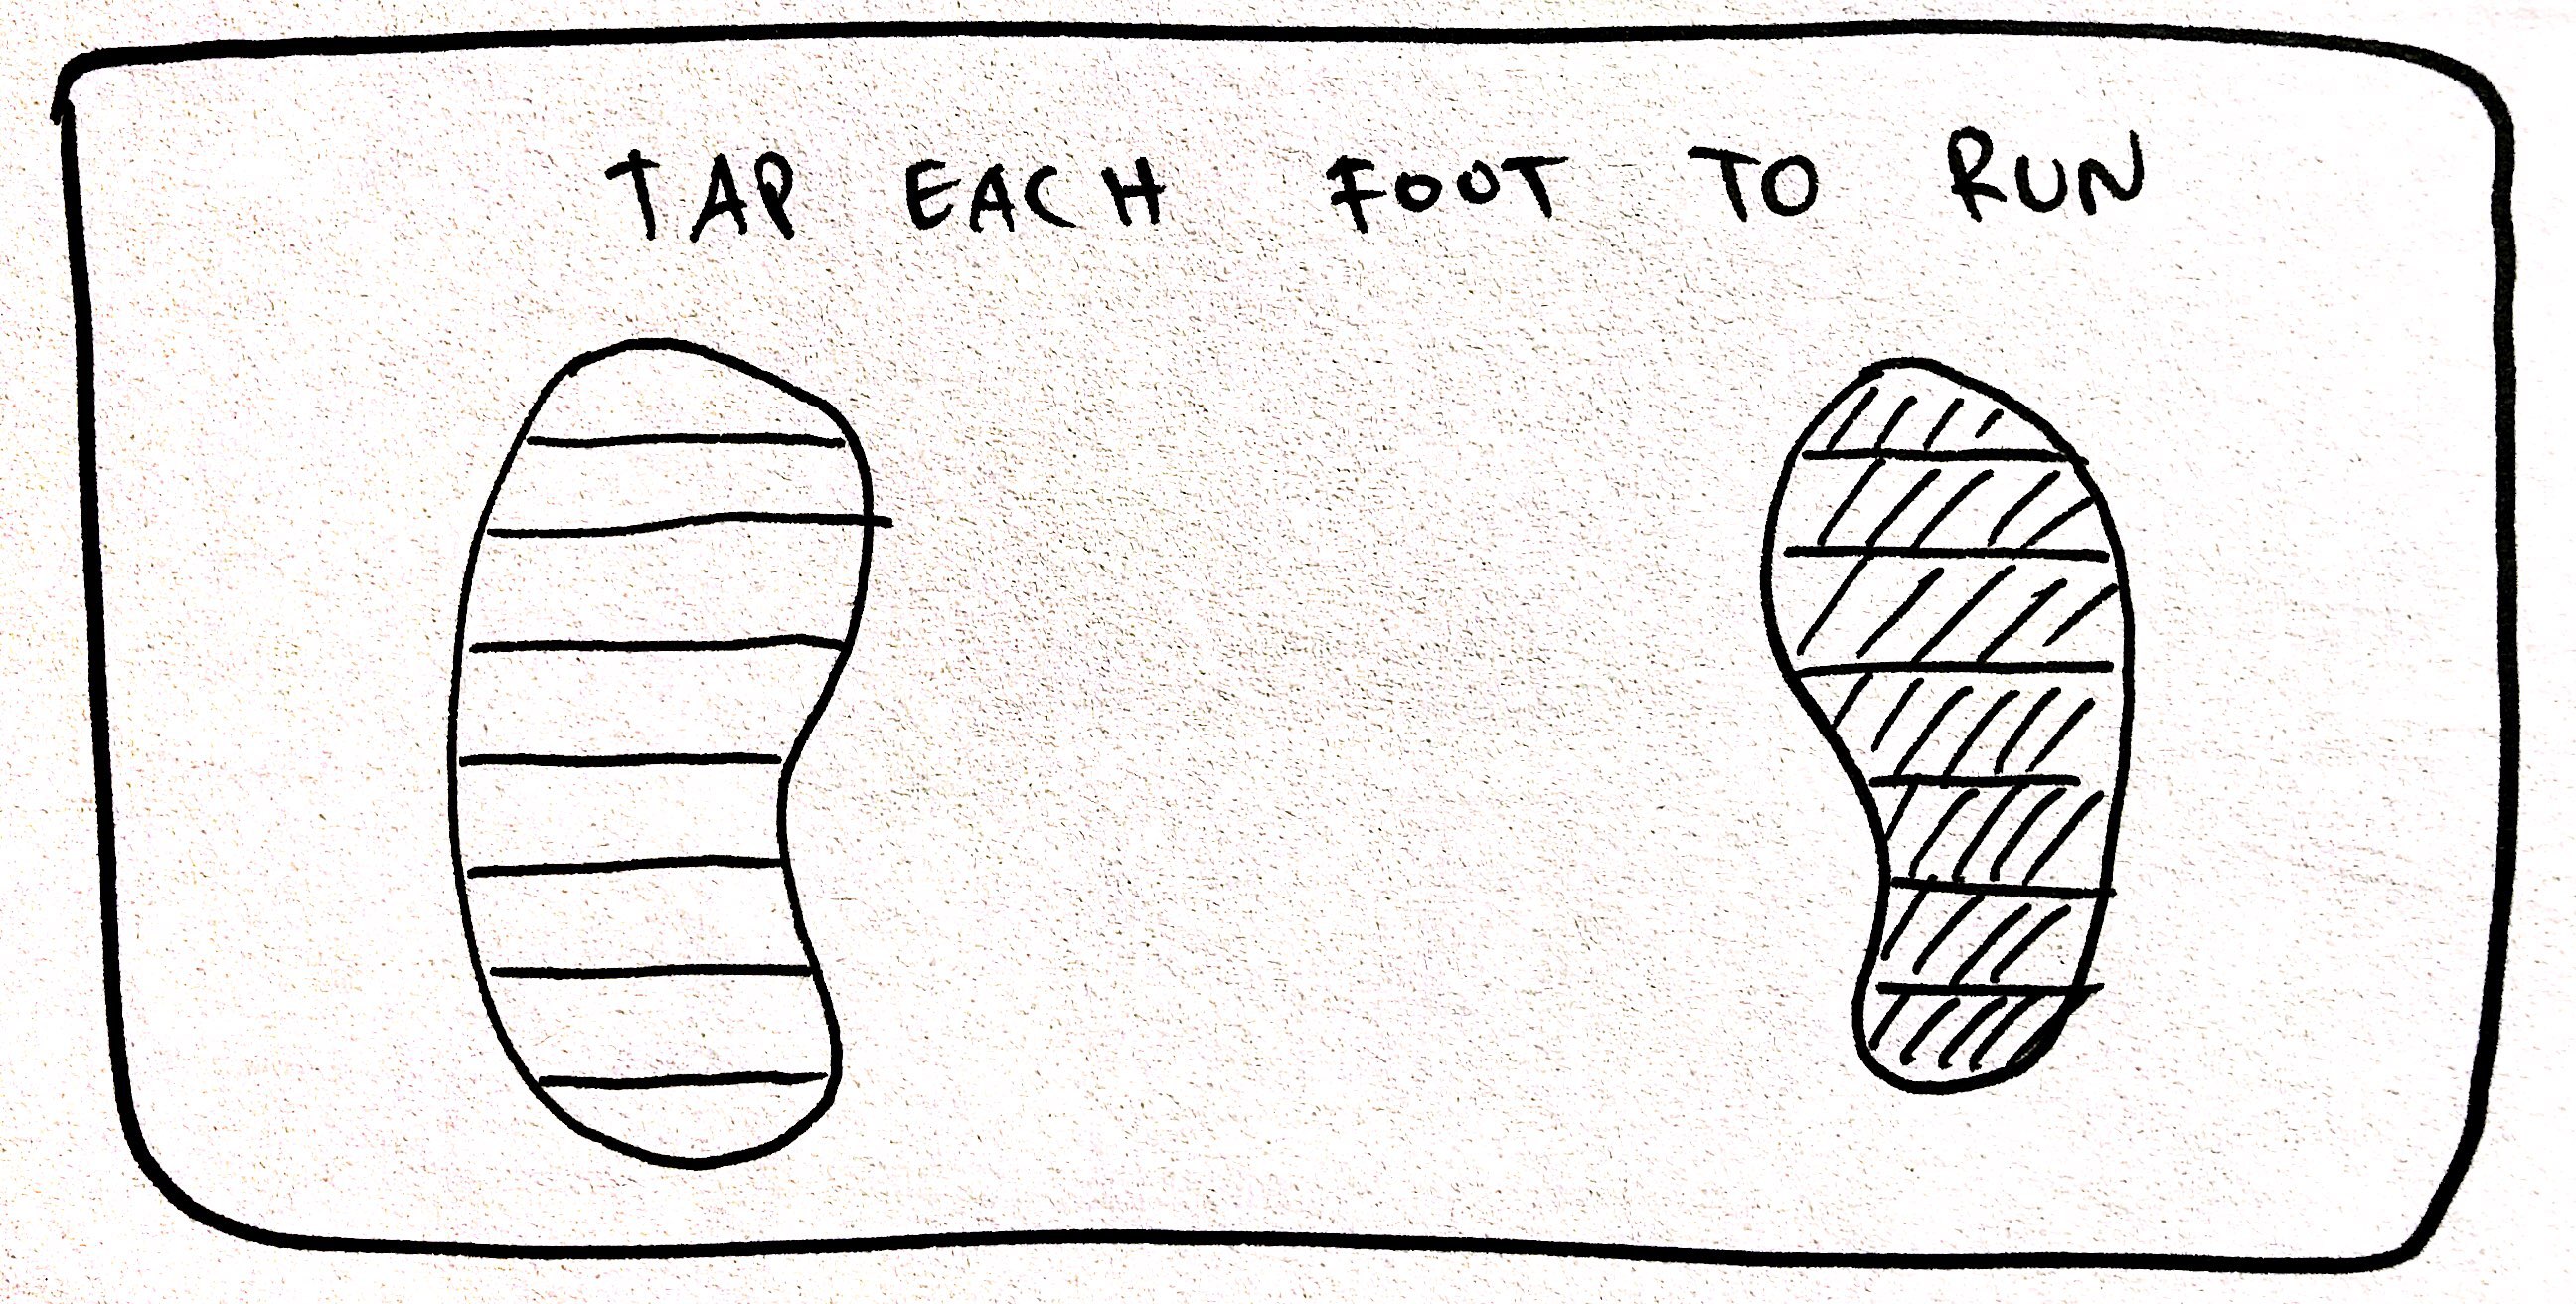 TAP EACH FOOT TO RUN